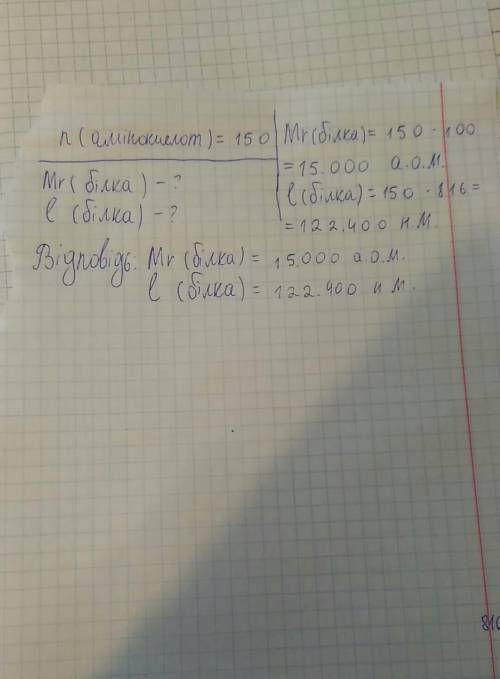 n (амінокислот) = 150
Mr ( білка ) - ?
l (білка) - ?
Mr (білка) = 150 · 100
= 15.000 а.о.м.
l (білка) = 150 · 816 =
= 122.400 н.м.
Відповідь: Mr (білка) = 15.000 а.о.м.
l (білка) = 122.400 н м.